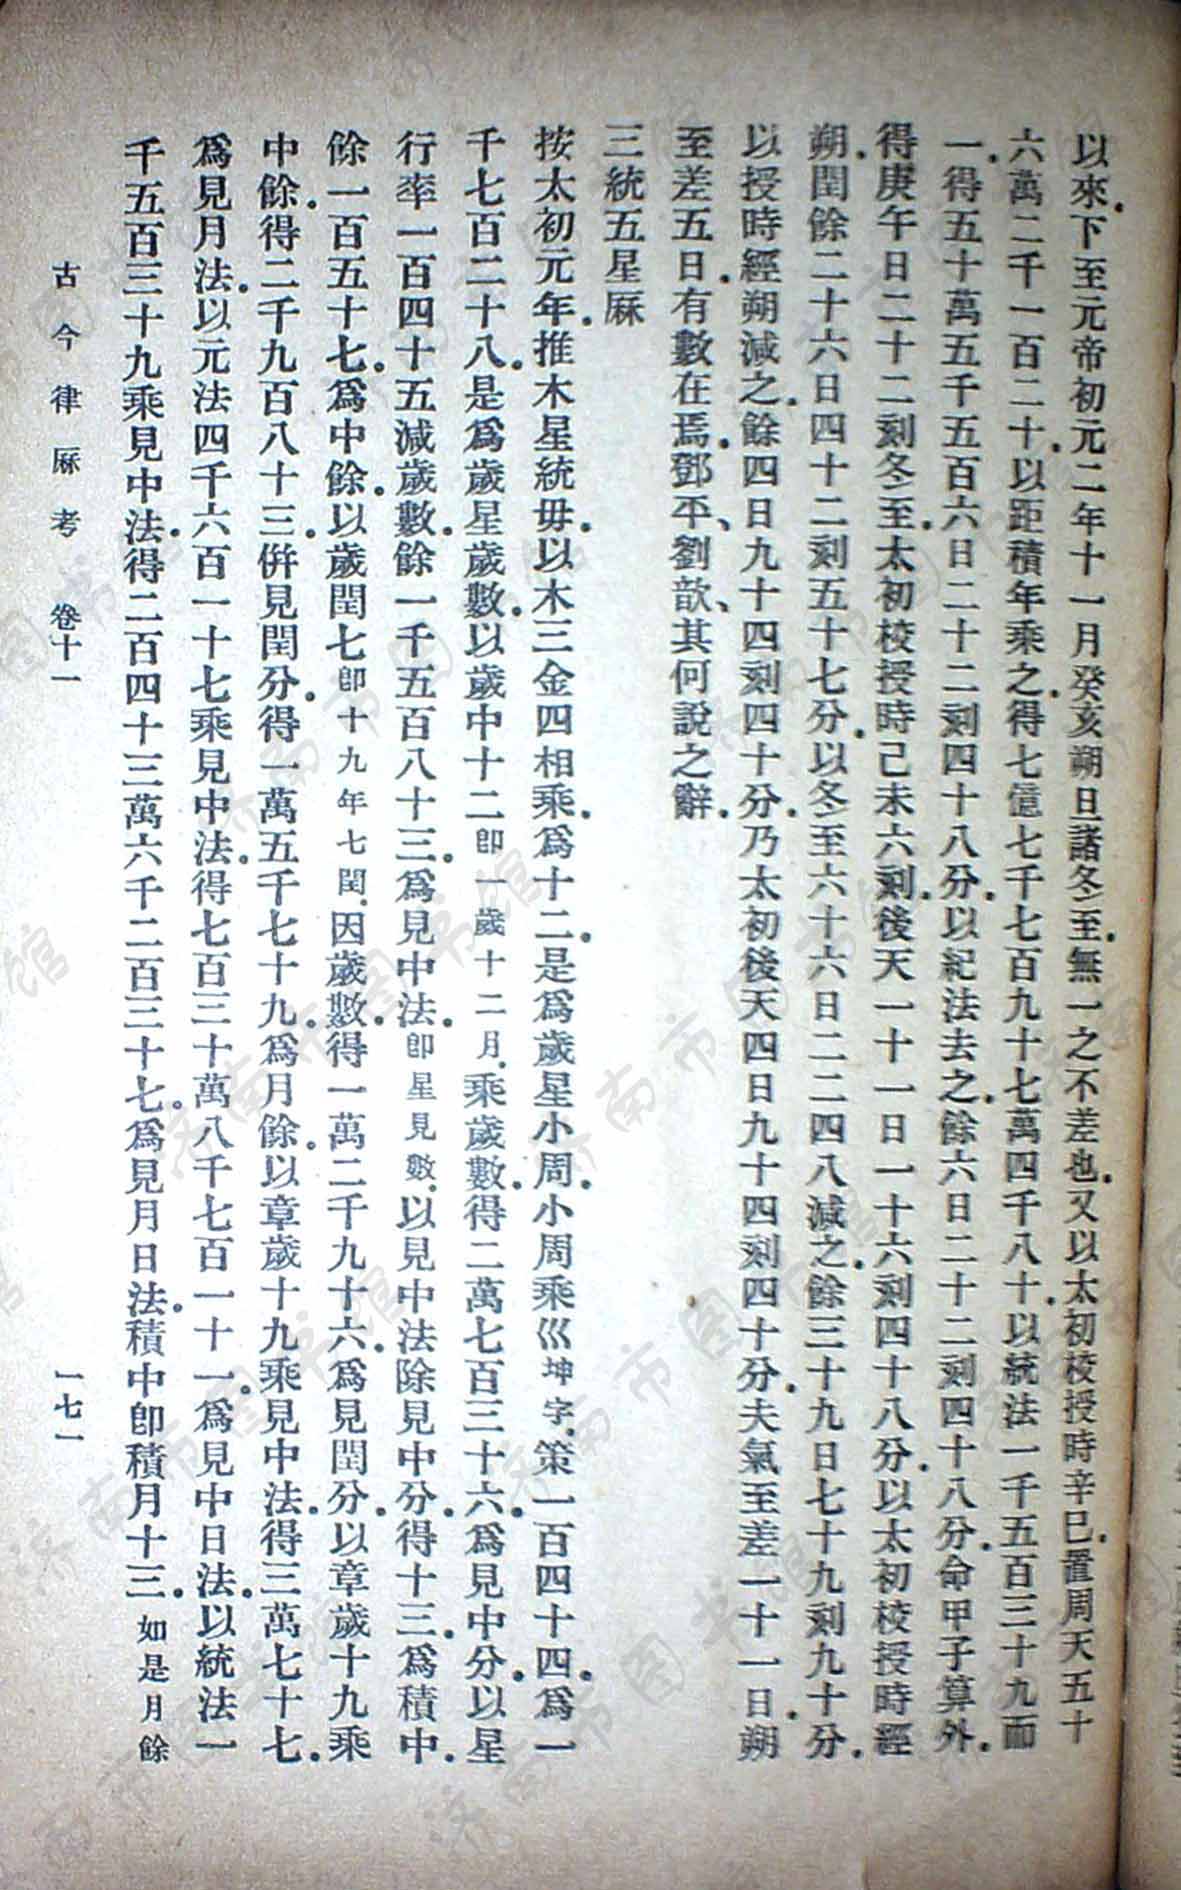 以來。下至元帝初元二年十一月癸亥朔旦、諸冬至。無一之不差也。又以太初校授時辛巳。置周天五十
六萬二千一百二十。以距積年乘之。得七億七千七百九十七萬四千八十。以統法一千五百三十九而
一。得五十萬五千五百六日二十二刻四十八分。以紀法去之。餘六日二十二刻四十八分。命甲子算外。
得庚午日二十二刻冬至。太初校授時己未六刻。後天一十一日一十六刻四十八分。以太初校授時經
朔。閏餘二十六日四十二刻五十七分。以冬至六十六日二二四八減之。餘三十九日七十九刻九十分。
以授時經朔減之。餘四日九十四刻四十分。乃太初後天四日九十四刻四十分。夫氣至差一十一日。朔
至差五日。有數在焉。鄧平、劉歆、其何說之辭。
三統五星厤
按太初元年。推木星統母。以木三金四相乘。爲十二。是爲歲星小周。小周乘巛坤字。策一百四十四。爲一
千七百二十八。是爲歲星歲數。以歲中十二卽一歲十二月。乘歲數。得二萬七百三十六。爲見中分。以星
行率一百四十五減歲數。餘一千五百八十三。爲見中法。卽星見數。以見中法除見中分。得十三。爲積中。
餘一百五十七。爲中餘。以歲閏七卽十九年七閏。因歲數。得一萬二千九十六。爲見閏分。以章歲十九乘
中餘。得二千九百八十三。併見閏分。得一萬五千七十九。爲月餘。以章歲十九乘見中法。得三萬七十七。
爲見月法。以元法四千六百一十七乘見中法。得七百三十萬八千七百一十一。爲見中日法。以統法一
千五百三十九乘見中法。得二百四十三萬六千二百三十七。爲見月日法。積中卽積月十三。如是月餘
古今律厤考　卷十一　一七一